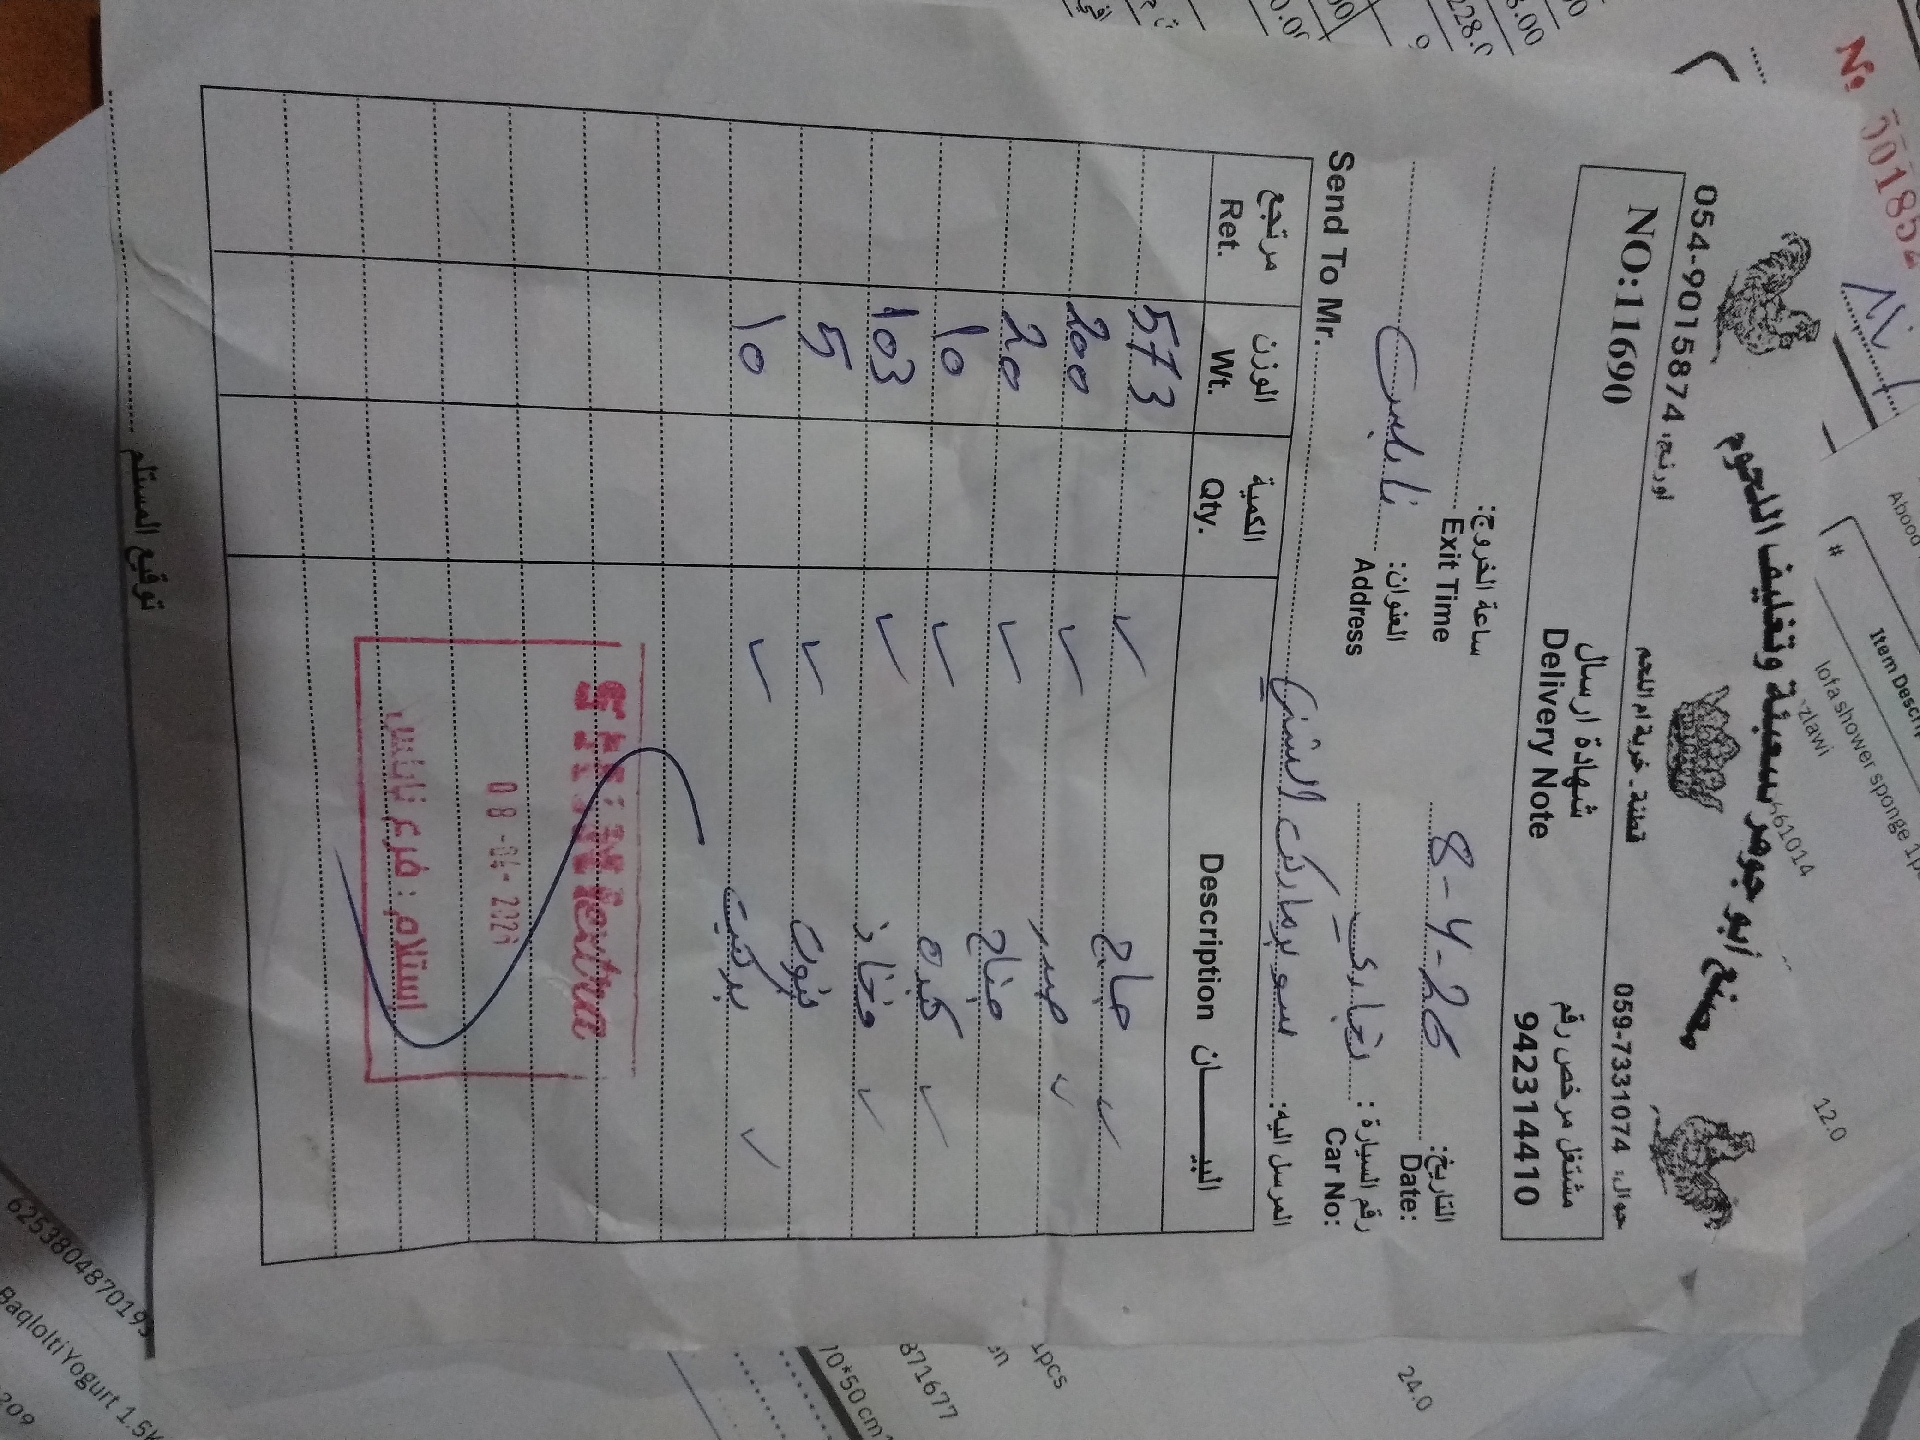 مصنع أبو جوهر لتعبئة وتغليف اللحوم
جوال: 059-7331074 قطنة - خربة ام اللحم اورنج: 054-9015874
مشتغل مرخص رقم
942314410
شهادة ارسال
Delivery Note
NO:11690
التاريخ: 8-4-26 ساعة الخروج:
Date: Exit Time
رقم السيارة: تجاري العنوان: نابلس
Car No: Address
المرسل اليه: سوبرماركت الشني Send To Mr.
البيـــــان Description الكمية Qty. الوزن Wt. مرتجع Ret.
جاج 573
صدر 200
جناح 20
كبدة 10
فخاذ 103
5
10
08-04-202
استلام: فرع نابلس
توقيع المستلم
Nº 001852
Abood
#
Item Descri
lofa shower sponge 1p
zlawi
661014
12.0
24.0
1pcs
871677
10*50cm
6253804870193
Baqlolti Yogurt 1.5K
209
228.0